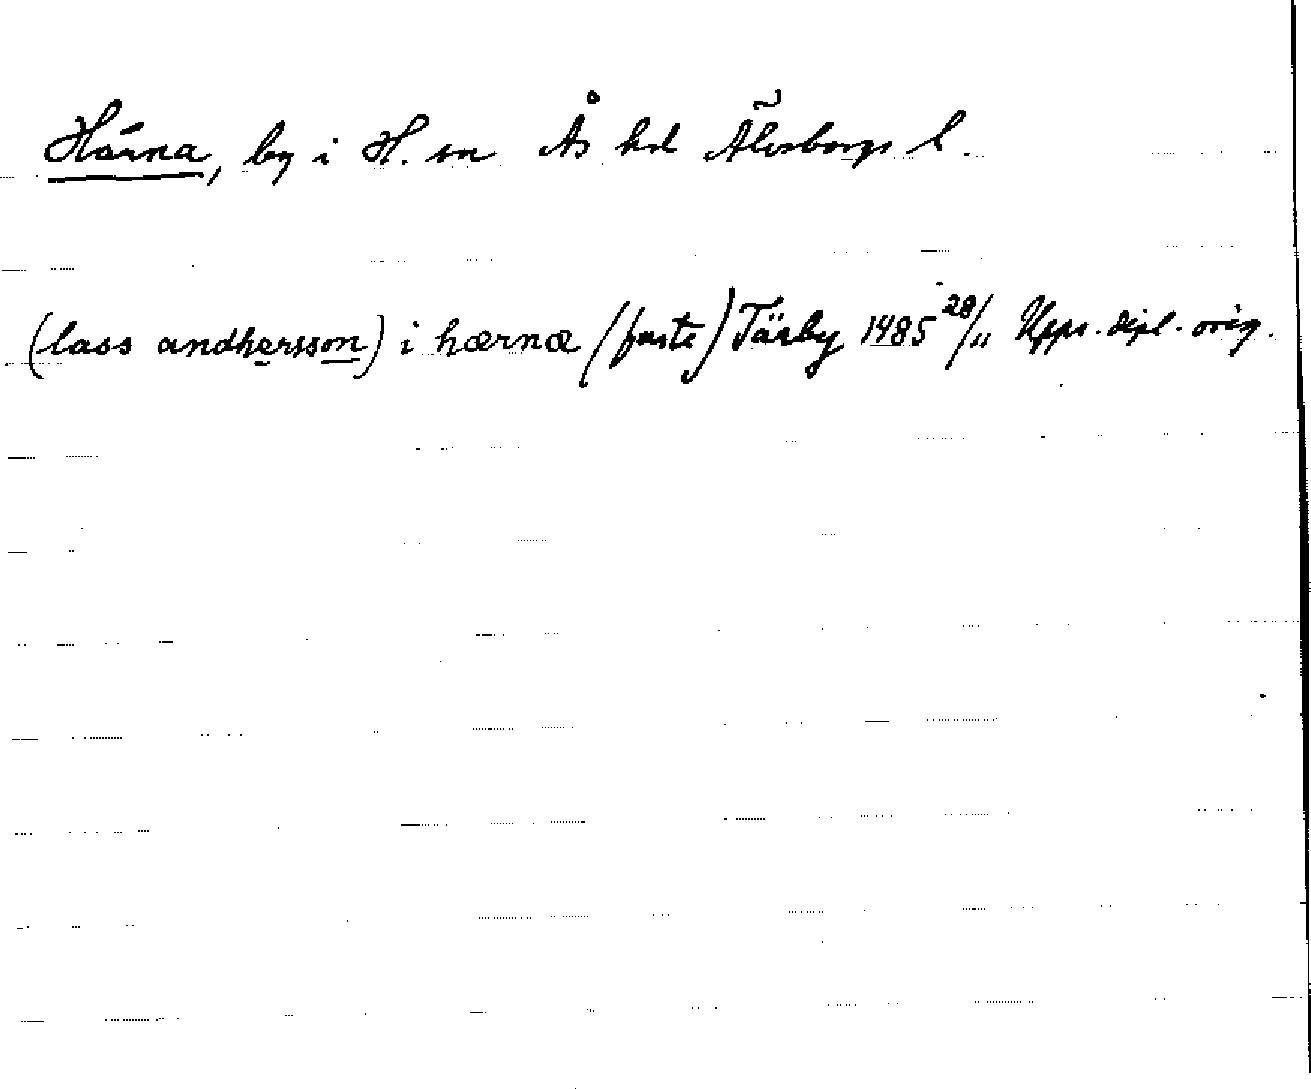 Härna, by i H. sn Ås hd Älvsborgs l.
(lass andhersson) i hærnæ (faste) Tärby 1485 28/11 Upps. dipl. orig.